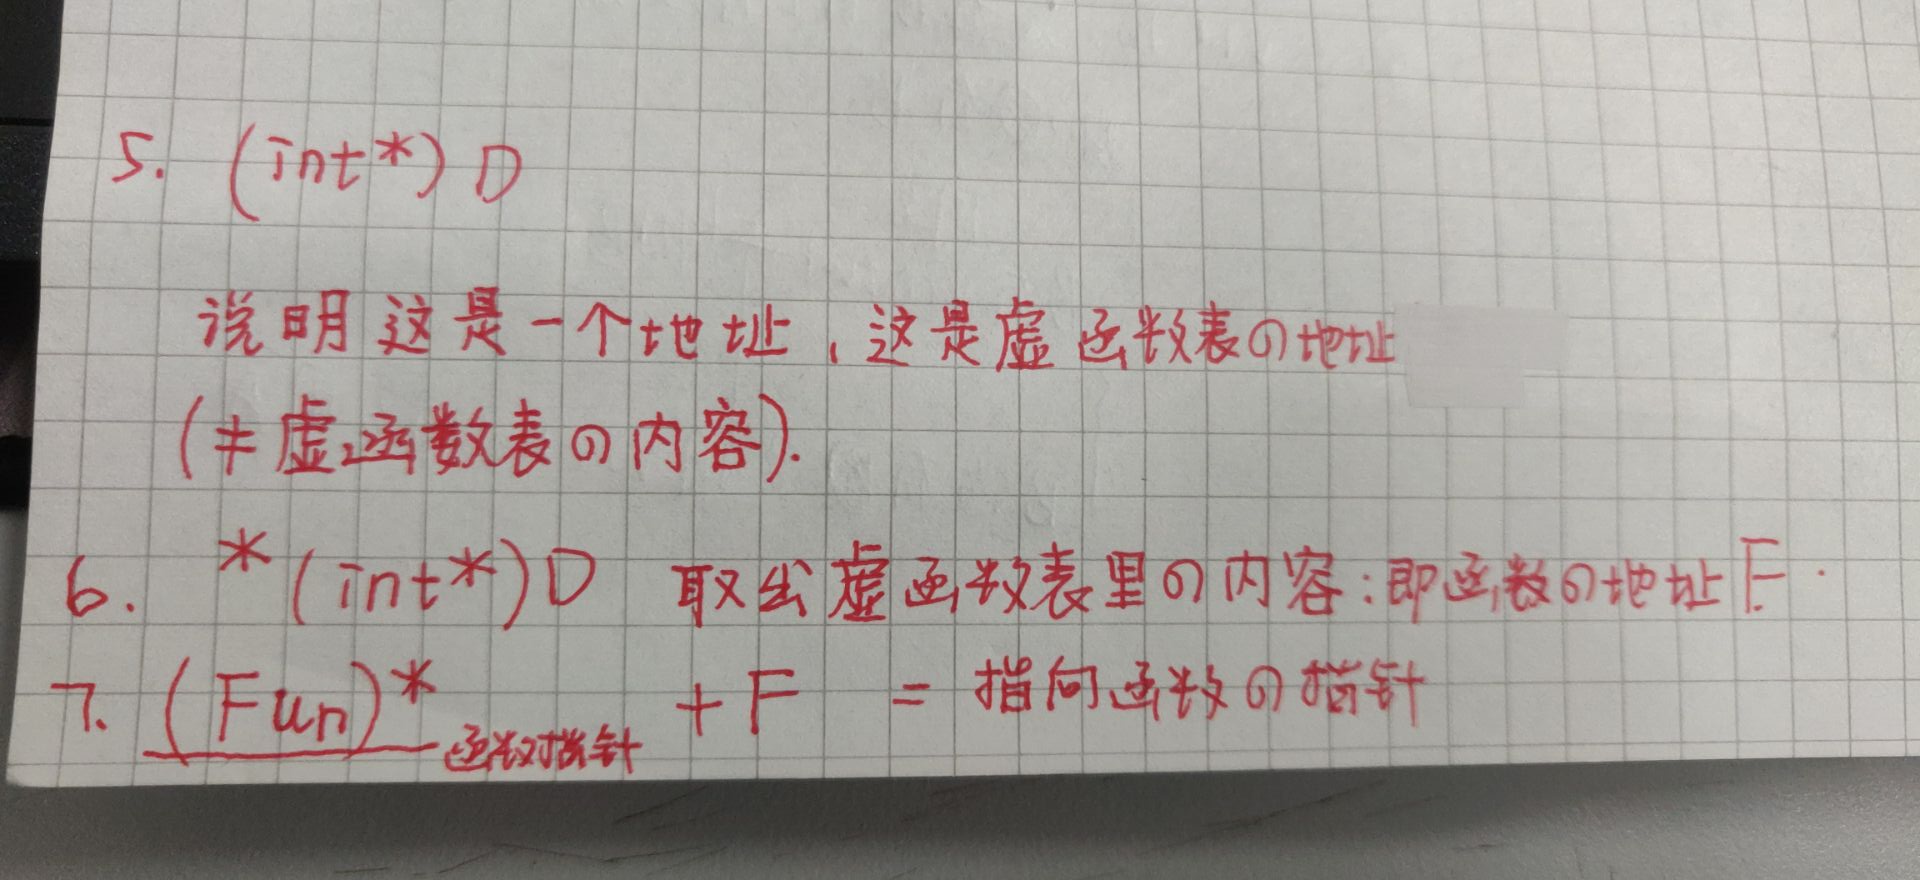 5. (int*) D
说明这是一个地址，这是虚函数表の地址
(≠虚函数表の内容).
6. *(int*)D 取出虚函数表里の内容:即函数の地址F.
7. (Fun)* 函数指针 + F = 指向函数の指针